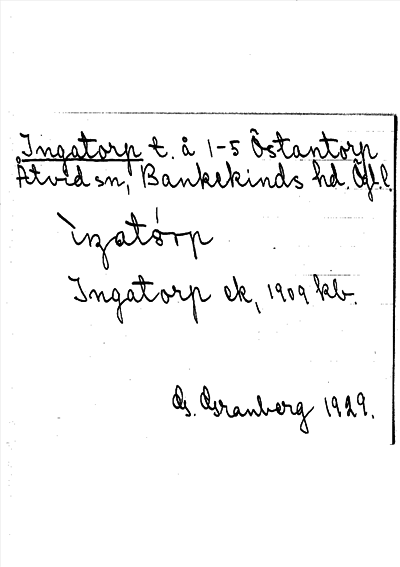 Ingatorp t. å 1-5 Östantorp
Åtvid sn, Bankekinds hd. Ögl.
Ingatorp ek, 1909 kb.
G. Granberg 1929.